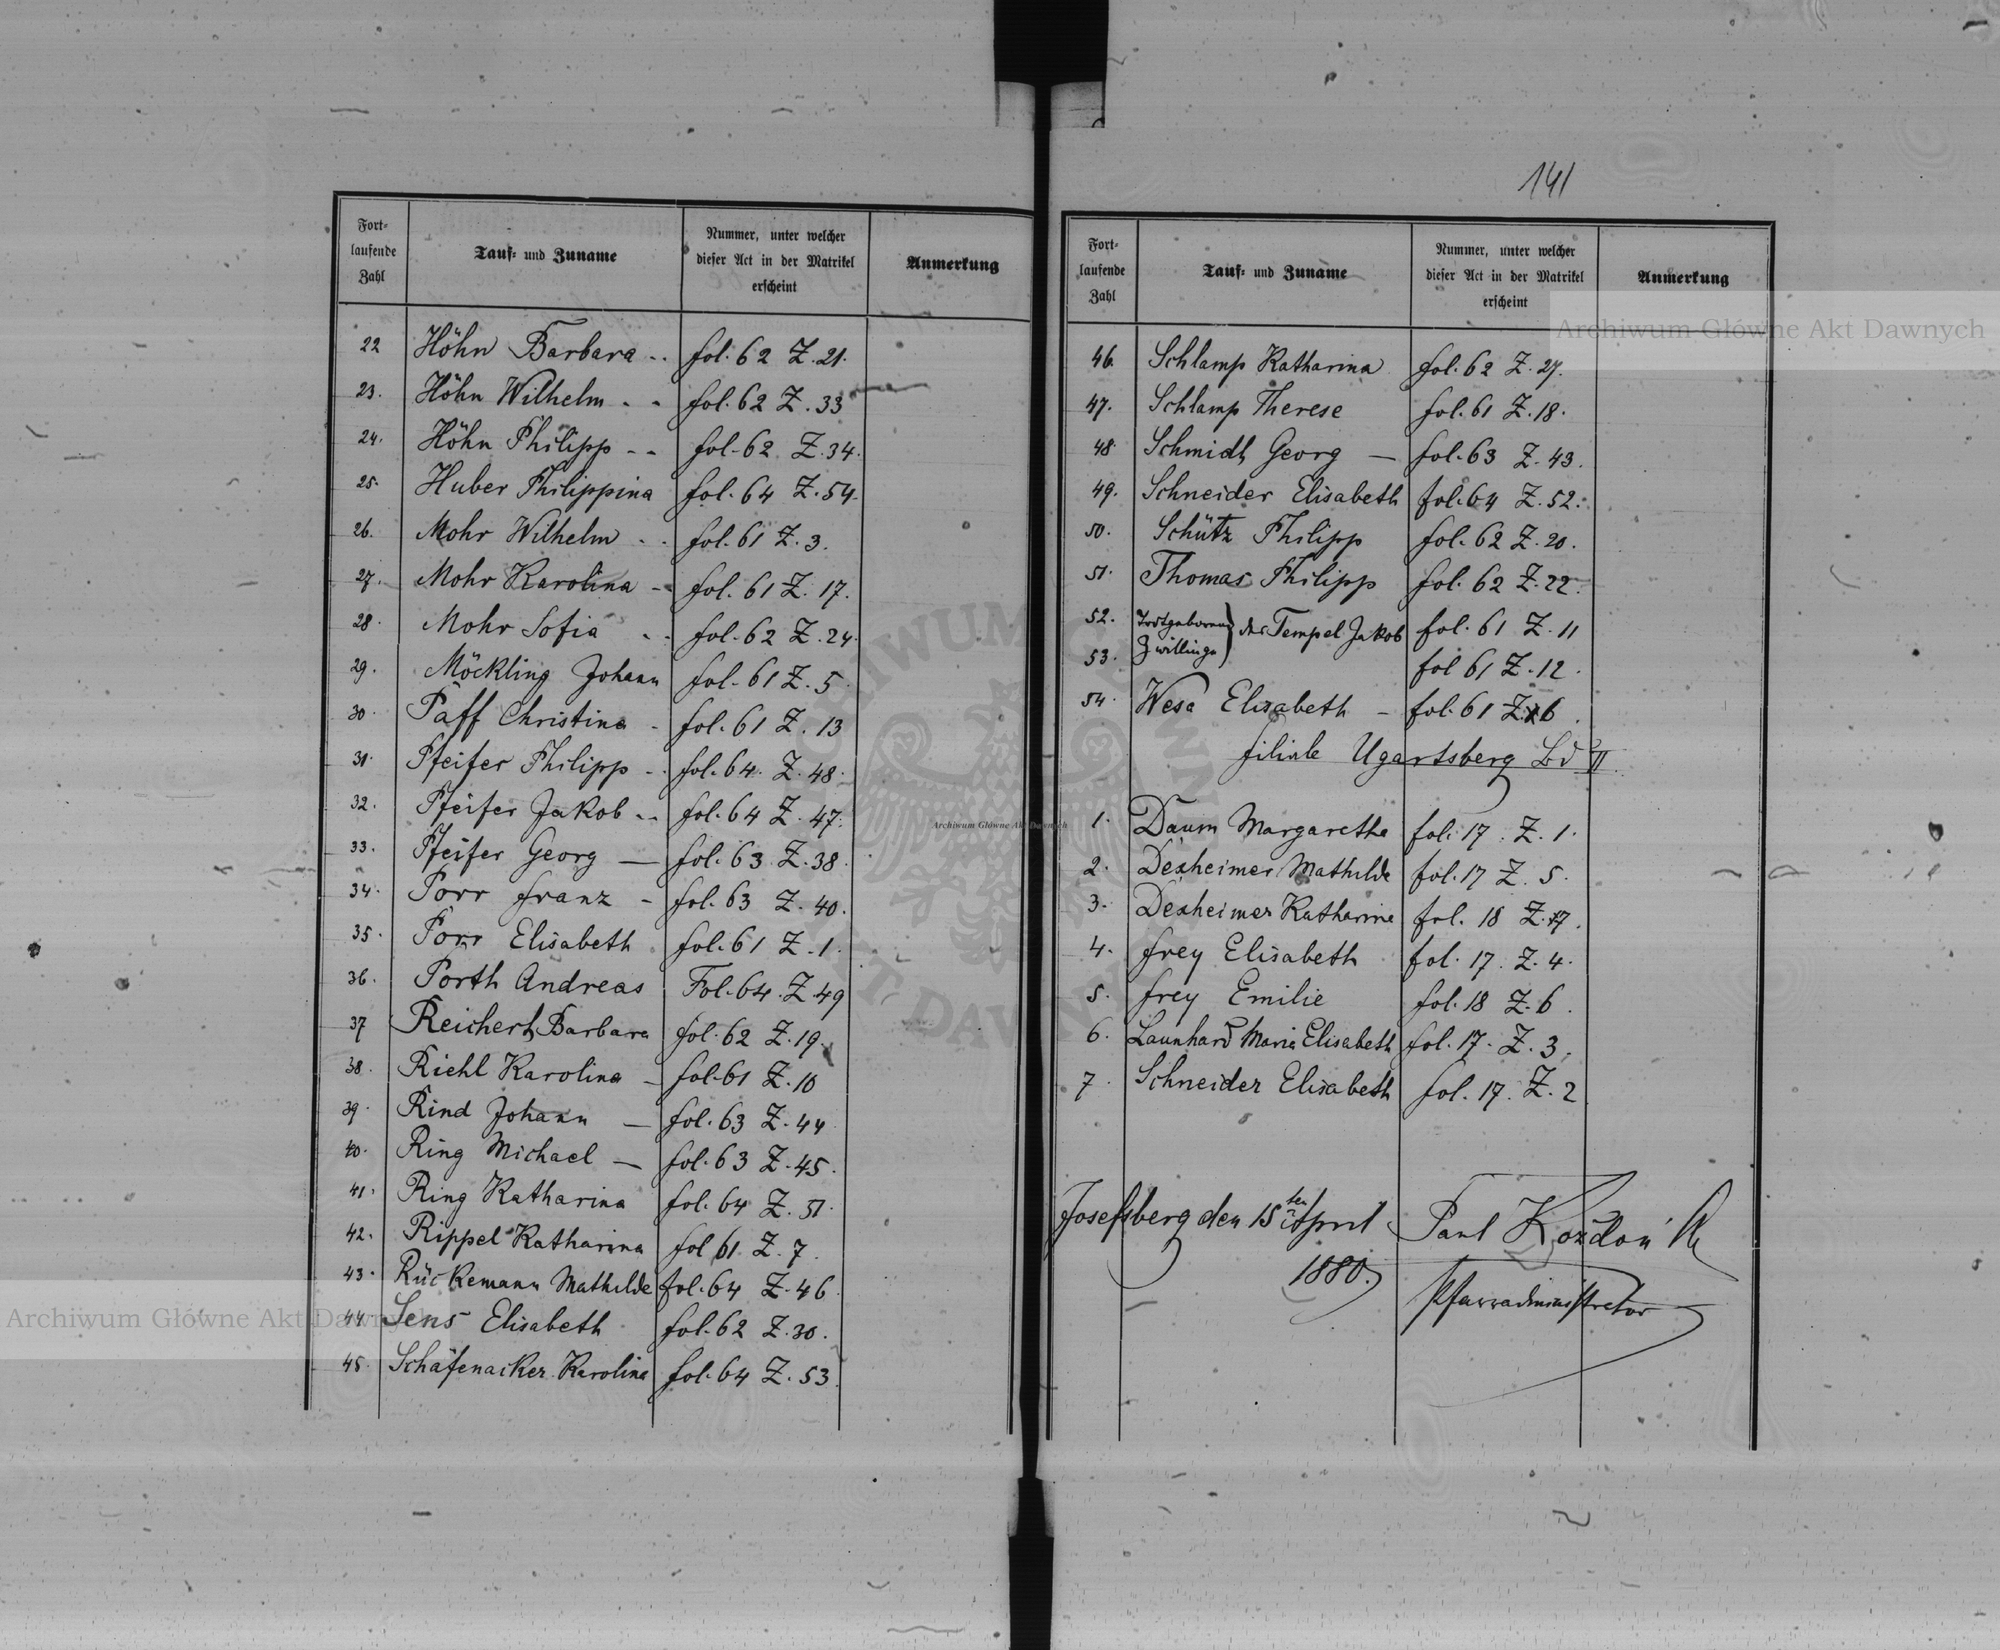 Fort-
laufende
Zahl
Tauf- und Zuname
Nummer, unter welcher
dieser Act in der Matrikel
erscheint
Anmerkung
22 Höhn Barbara fol. 62 Z. 21.
23. Höhn Wilhelm fol. 62 Z. 33
24. Höhn Philipp fol. 62 Z. 34.
25. Huber Philippina fol. 64 Z. 54.
26. Mohr Wilhelm fol. 61 Z. 3.
27. Mohr Karolina fol. 61 Z. 17.
28. Mohr Sofia fol. 62 Z. 24.
29. Möckling Johann fol. 61 Z. 5
30. Paff Christina fol. 61 Z. 13
31. Pfeifer Philipp fol. 64. Z. 48.
32. Pfeifer Jakob fol. 64 Z. 47.
33. Pfeifer Georg — fol. 63 Z. 38.
34. Porr Franz - fol. 63 Z. 40.
35. Porr Elisabeth fol. 61 Z. 1.
36. Porth Andreas Fol. 64. Z. 49
37 Reichert Barbara fol. 62 Z. 19.
38. Riehl Karolina - fol. 61 Z. 10
39. Rind Johann — fol. 63 Z. 44
40. Ring Michael — fol. 63 Z. 45.
41. Ring Katharina fol. 64 Z. 51.
42. Rippel Katharina fol 61. Z. 7.
43. Rückemann Mathilde fol. 64 Z. 46
44. Sens Elisabeth fol. 62 Z. 30.
45. Schäfenacker Karolina fol. 64 Z. 53.
141
Fort-
laufende
Zahl
Tauf- und Zuname
Nummer, unter welcher
dieser Act in der Matrikel
erscheint
Anmerkung
46. Schlamp Katharina fol. 62 Z. 27.
47. Schlamp Therese fol. 61 Z. 18.
48. Schmidt Georg — fol. 63 Z. 43.
49. Schneider Elisabeth fol. 64 Z. 52.
50. Schütz Philipp fol. 62 Z. 20.
51. Thomas Philipp fol. 62 Z. 22.
52. Todtgeborene des Tempel Jakob fol. 61 Z. 11
53. Zwillinge fol 61 Z. 12.
54. Wesa Elisabeth - fol. 61 Z. 6.
Filiale Ugartsberg Bd II
1. Daum Margaretha fol. 17. Z. 1.
2. Dexheimer Mathilde fol. 17 Z. 5.
3. Dexheimer Katharina fol. 18 Z. 7.
4. Frey Elisabeth fol. 17. Z. 4.
5. Frey Emilie fol. 18 Z. 6.
6. Launhard Maria Elisabeth fol. 17. Z. 3.
7. Schneider Elisabeth fol. 17. Z. 2
Josefsberg den 15ten April Paul Kozdoń
1880. Pfarradministrator
Archiwum Główne Akt Dawnych
Archiwum Główne Akt Dawnych
Archiwum Główne Akt Dawnych